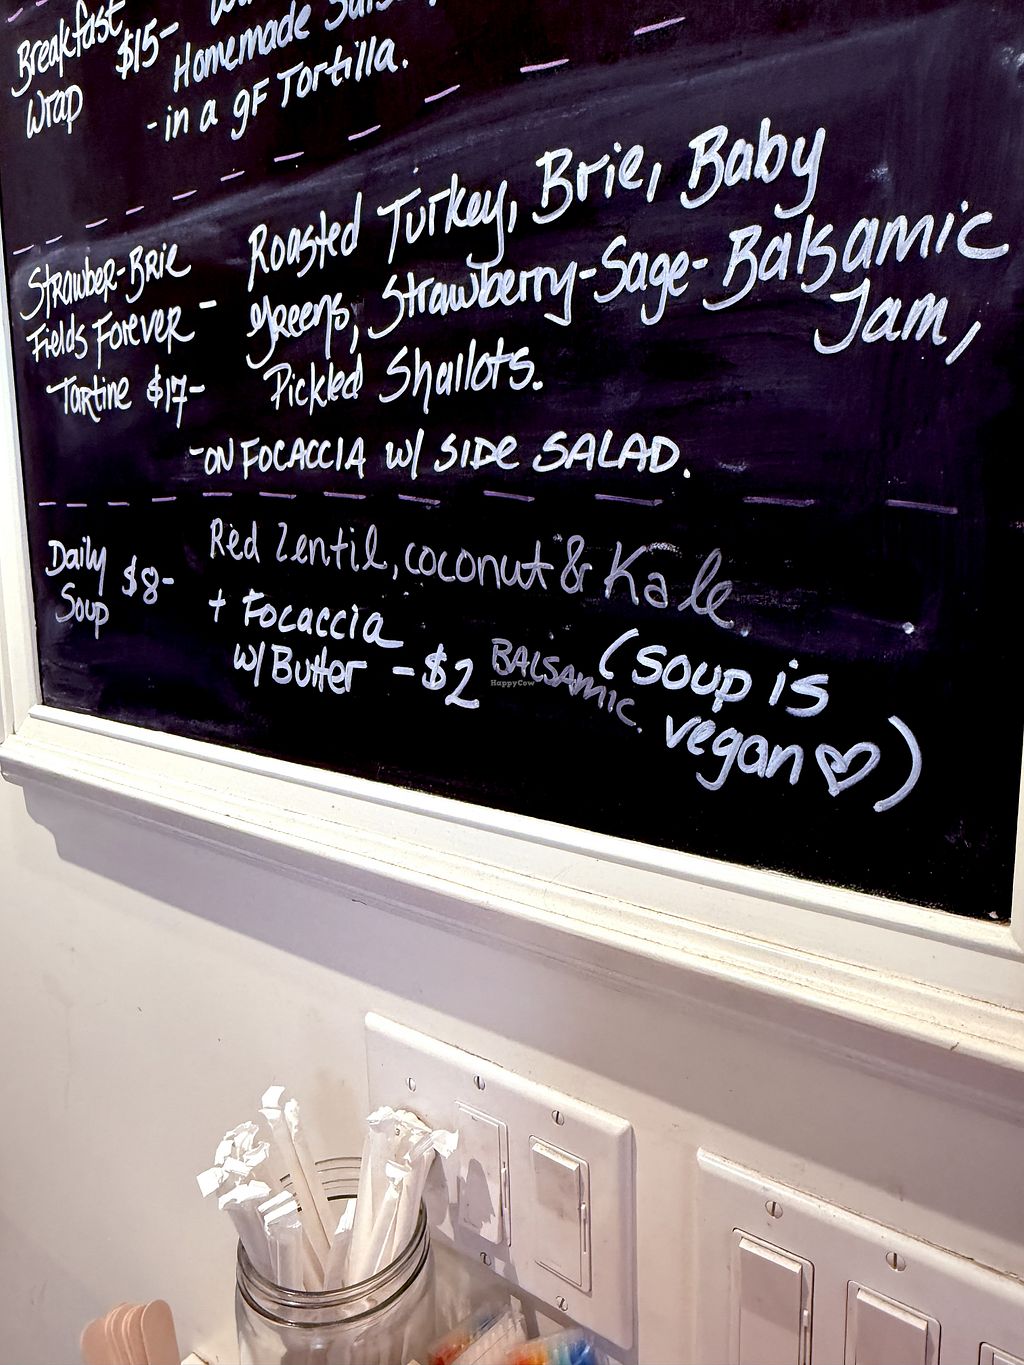 Breakfast $15-
Wrap
Homemade
-in a gF Tortilla.
Strawber-Brie
Fields Forever -
Tartine $17-
Roasted Turkey, Brie, Baby
greens, Strawberry-Sage-Balsamic
Jam,
Pickled Shallots.
-ON FOCACCIA w/ SIDE SALAD.
Daily
Soup $8-
Red Lentil, coconut & Kale
+ Focaccia
w/ Butter - $2
BALSAMIC.
(soup is
vegan♡)
HappyCow